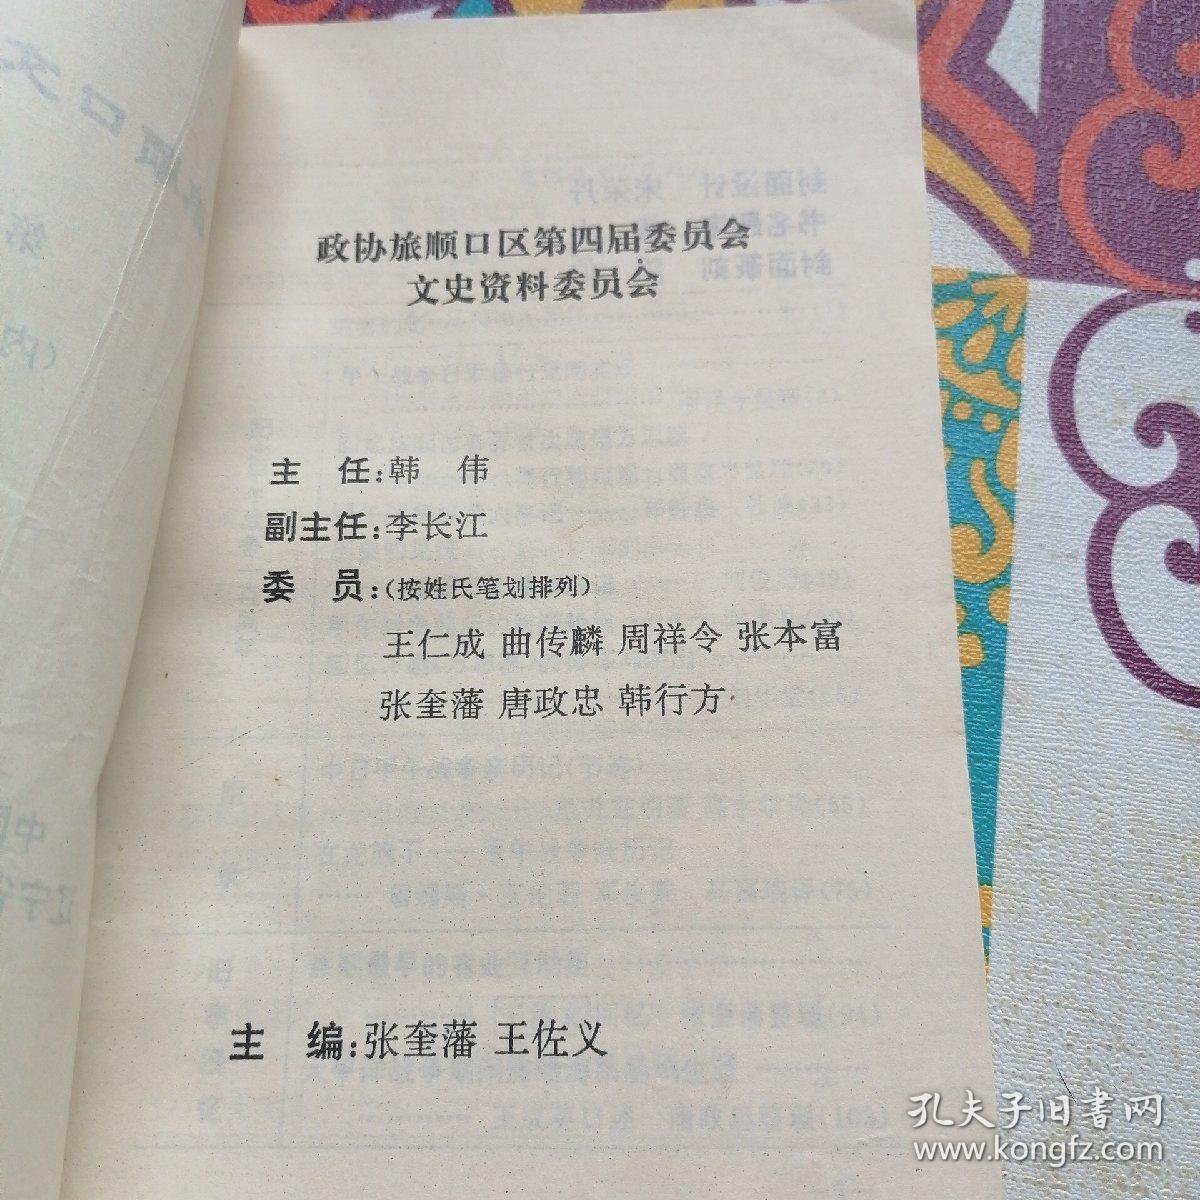 政协旅顺口区第四届委员会
文史资料委员会
主 任:韩 伟
副主任:李长江
委 员:(按姓氏笔划排列)
王仁成 曲传麟 周祥令 张本富
张奎藩 唐政忠 韩行方
主 编:张奎藩 王佐义
孔夫子旧书网
www.kongfz.com